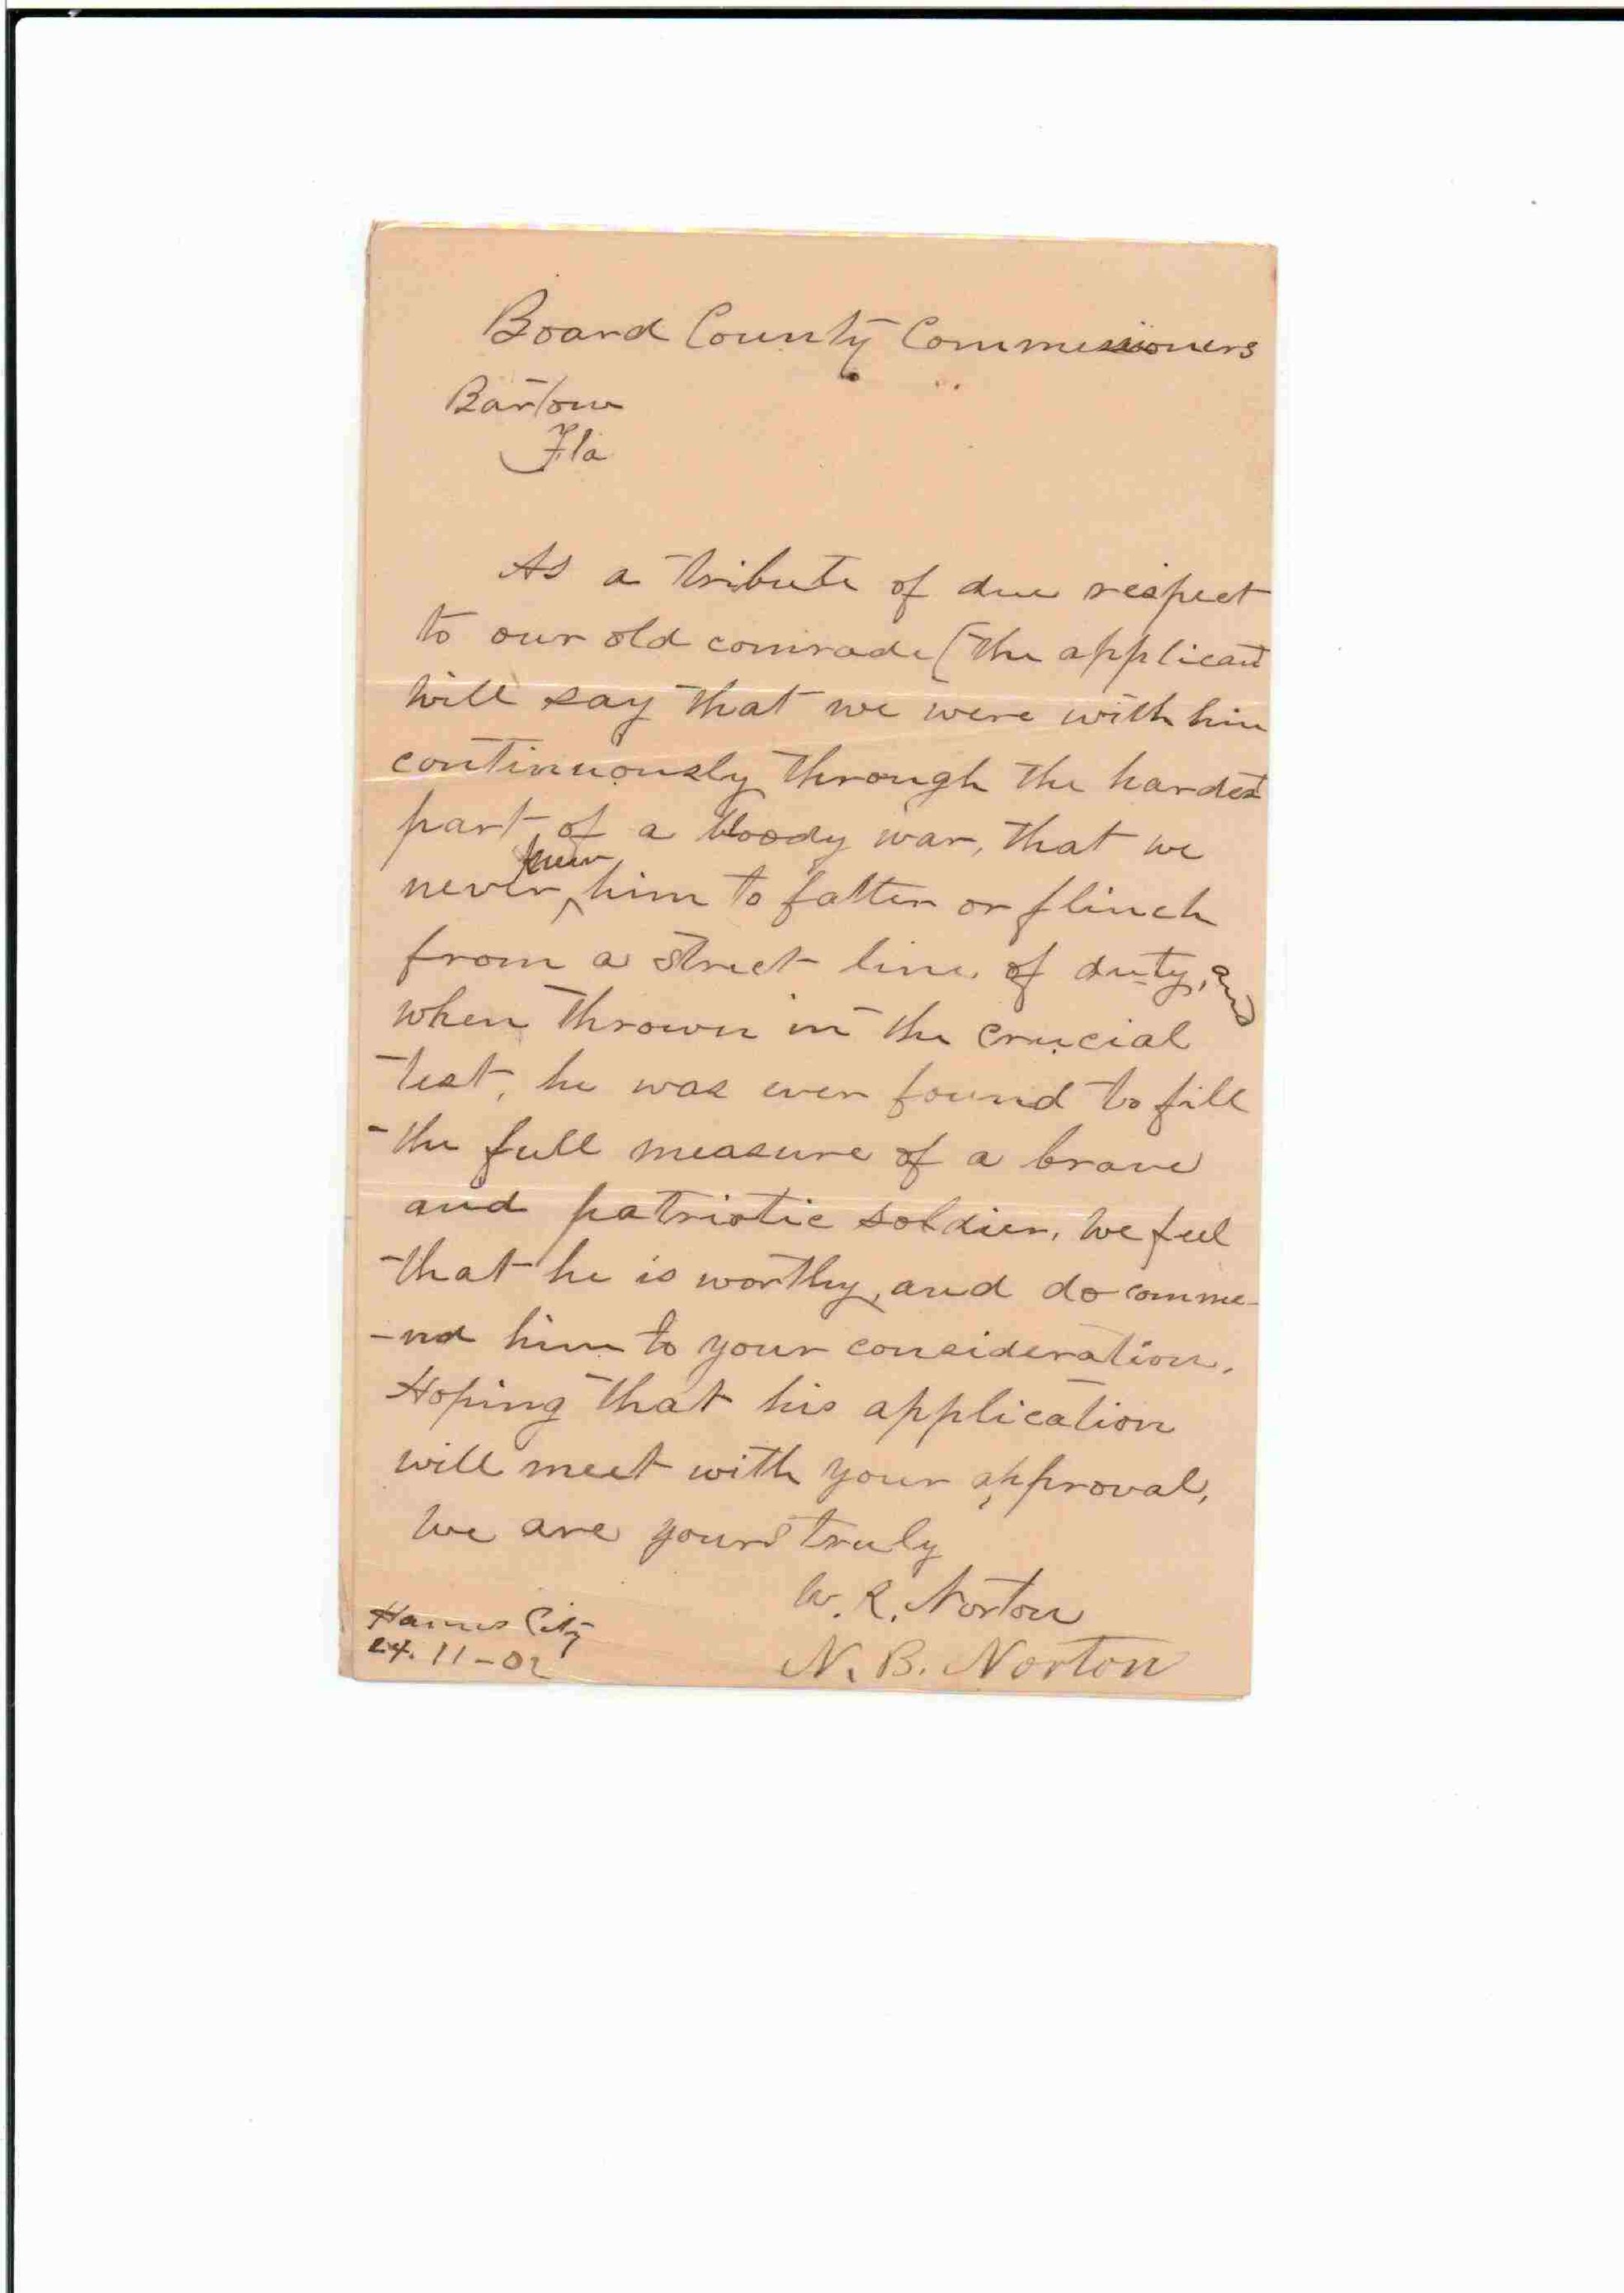 Board County Commissioners
Bartow
Fla
As a tribute of due respect
to our old comrade (the applicant
will say that we were with him
continuously through the hardest
part of a bloody war, that we
knew
never ^ him to falter or flinch
from a strict line of duty, and
when thrown in the crucial
test, he was ever found to fill
the full measure of a brave
and patriotic soldier. We feel
that he is worthy, and do comme-
-nd him to your consideration.
Hoping that his application
will meet with your approval,
We are yours truly
W. R. Norton
N. B. Norton
Haines City
24. 11-02